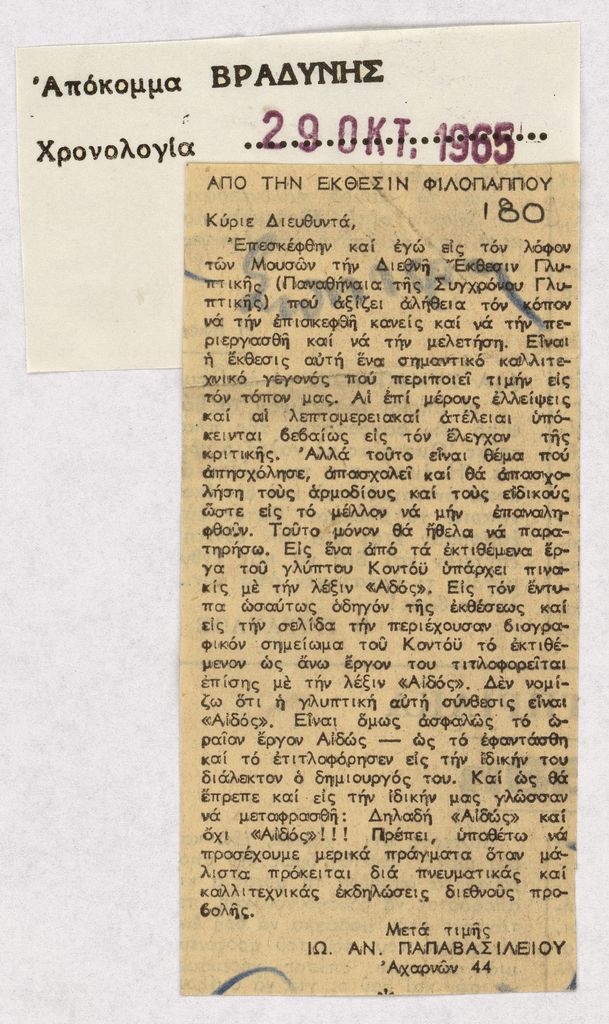 Ἀπόκομμα ΒΡΑΔΥΝΗΣ
Χρονολογία 29 ΟΚΤ. 1965
ΑΠΟ ΤΗΝ ΕΚΘΕΣΙΝ ΦΙΛΟΠΑΠΠΟΥ
180
Κύριε Διευθυντά,
Ἐπεσκέφθην καί ἐγώ εἰς τόν λόφον
τῶν Μουσῶν τήν Διεθνῆ Ἔκθεσιν Γλυ-
πτικῆς (Παναθήναια τῆς Συγχρόνου Γλυ-
πτικῆς) πού ἀξίζει ἀλήθεια τόν κόπον
νά τήν ἐπισκεφθῆ κανείς καί νά τήν πε-
ριεργασθῆ καί νά τήν μελετήση. Εἶναι
ἡ ἔκθεσις αὐτή ἕνα σημαντικό καλλιτε-
χνικό γεγονός πού περιποιεῖ τιμήν εἰς
τόν τόπον μας. Αἱ ἐπί μέρους ἐλλείψεις
καί αἱ λεπτομερειακαί ἀτέλειαι ὑπό-
κεινται βεβαίως εἰς τόν ἔλεγχον τῆς
κριτικῆς. Ἀλλά τοῦτο εἶναι θέμα πού
ἀπησχόλησε, ἀπασχολεῖ καί θά ἀπασχο-
λήση τούς ἁρμοδίους καί τούς εἰδικούς
ὥστε εἰς τό μέλλον νά μήν ἐπαναλη-
φθοῦν. Τοῦτο μόνον θά ἤθελα νά παρα-
τηρήσω. Εἰς ἕνα ἀπό τά ἐκτιθέμενα ἔρ-
γα τοῦ γλύπτου Κοντόϋ ὑπάρχει πινα-
κίς μέ τήν λέξιν «Αδός». Εἰς τόν ἔντυ-
πα ὡσαύτως ὁδηγόν τῆς ἐκθέσεως καί
εἰς τήν σελίδα τήν περιέχουσαν βιογρα-
φικόν σημείωμα τοῦ Κοντόϋ τό ἐκτιθέ-
μενον ὡς ἄνω ἔργον του τιτλοφορεῖται
ἐπίσης μέ τήν λέξιν «Αἰδός». Δέν νομί-
ζω ὅτι ἡ γλυπτική αὐτή σύνθεσις εἶναι
«Αἰδός». Εἶναι ὅμως ἀσφαλῶς τό ὡ-
ραῖον ἔργον Αἰδώς — ὡς τό ἐφαντάσθη
καί τό ἐτιτλοφόρησεν εἰς τήν ἰδικήν του
διάλεκτον ὁ δημιουργός του. Καί ὡς θά
ἔπρεπε καί εἰς τήν ἰδικήν μας γλῶσσαν
νά μεταφρασθῆ: Δηλαδή «Αἰδώς» καί
ὄχι «Αἰδός»!!! Πρέπει, ὑποθέτω νά
προσέχουμε μερικά πράγματα ὅταν μά-
λιστα πρόκειται διά πνευματικάς καί
καλλιτεχνικάς ἐκδηλώσεις διεθνοῦς προ-
βολῆς.
Μετά τιμῆς
ΙΩ. ΑΝ. ΠΑΠΑΒΑΣΙΛΕΙΟΥ
Ἀχαρνῶν 44